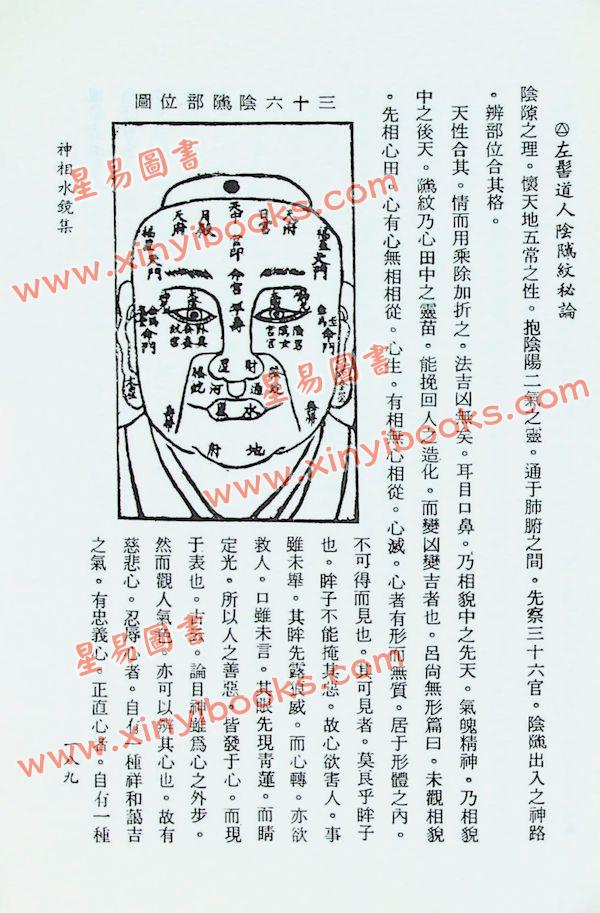 左髻道人陰隲紋秘論
陰隲之理。懷天地五常之性。抱陰陽二氣之靈。通于肺腑之間。先察三十六官。陰隲出入之神路
。辨部位合其格。
天性合其。情而用乘除加折之。法吉凶無矣。耳目口鼻。乃相貌中之先天。氣魄精神。乃相貌
中之後天。隲紋乃心田中之靈苗。能挽回人之造化。而變凶變吉者也。呂尚無形篇曰。未觀相貌
。先相心田。心有心無相相從。心生。有相無心相從。心滅。心者有形而無質。居于形體之內。
不可得而見也。其可見者。莫良乎眸子
也。眸子不能掩其惡。故心欲害人。事
雖未舉。其眸先露
威。而心轉。亦欲
救人。口雖未言。其眼先現青蓮。而睛
定光。所以人之善惡。皆發于心。而現
于表也。古云。論目神雖爲心之外步。
然而觀人氣色。亦可以辨其心也。故有
慈悲心。忍辱心者。自有一種祥和藹吉
之氣。有忠義心。正直心者。自有一種
三十六陰隲部位圖
天府
日宮
天中
月殿
天府
天門
天門
官印
命宮
年壽
命門
命門
財星
通
河
水星
地府
神相水鏡集
一八九
星易圖書
www.xinyibooks.com
星易圖書
www.xinyibooks.com
星易圖書
www.xinyibooks.com